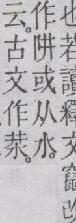 也若讀釋文竄
作阱或从水
云古文作汬